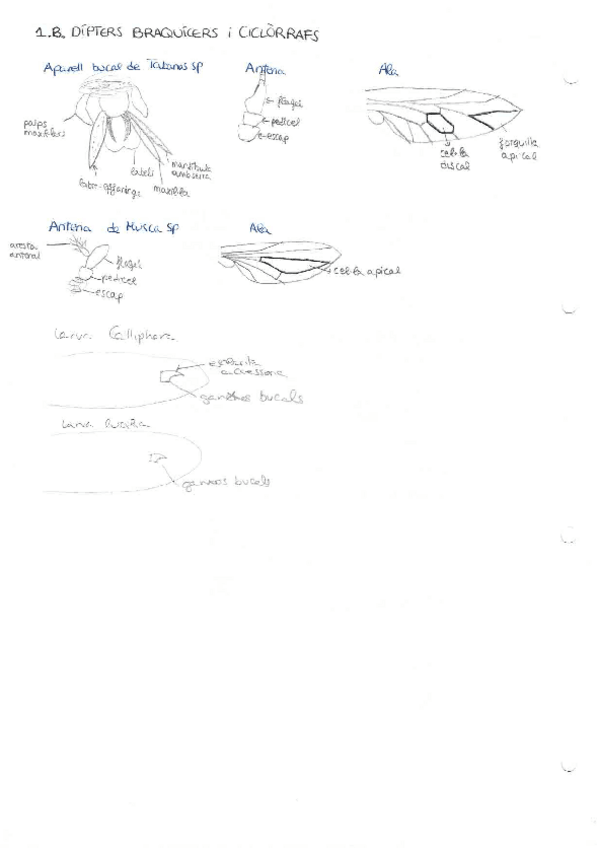 1.B. DÍPTERS BRAQUÍCERS i CICLÒRRAFS
Aparell bucal de Tabanus sp
Antena
Ala
palps
maxil·lars
labre-epifaringe
labeli
maxil·la
mandíbula
flagel
pedicel
escap
cel·la
discal
forquilla
apical
Antena de Musca sp
Ala
aresta
antenal
flagel
pedicel
escap
cel·la apical
Larva Calliphora
accessòria
ganxos bucals
Larva
ganxos bucals